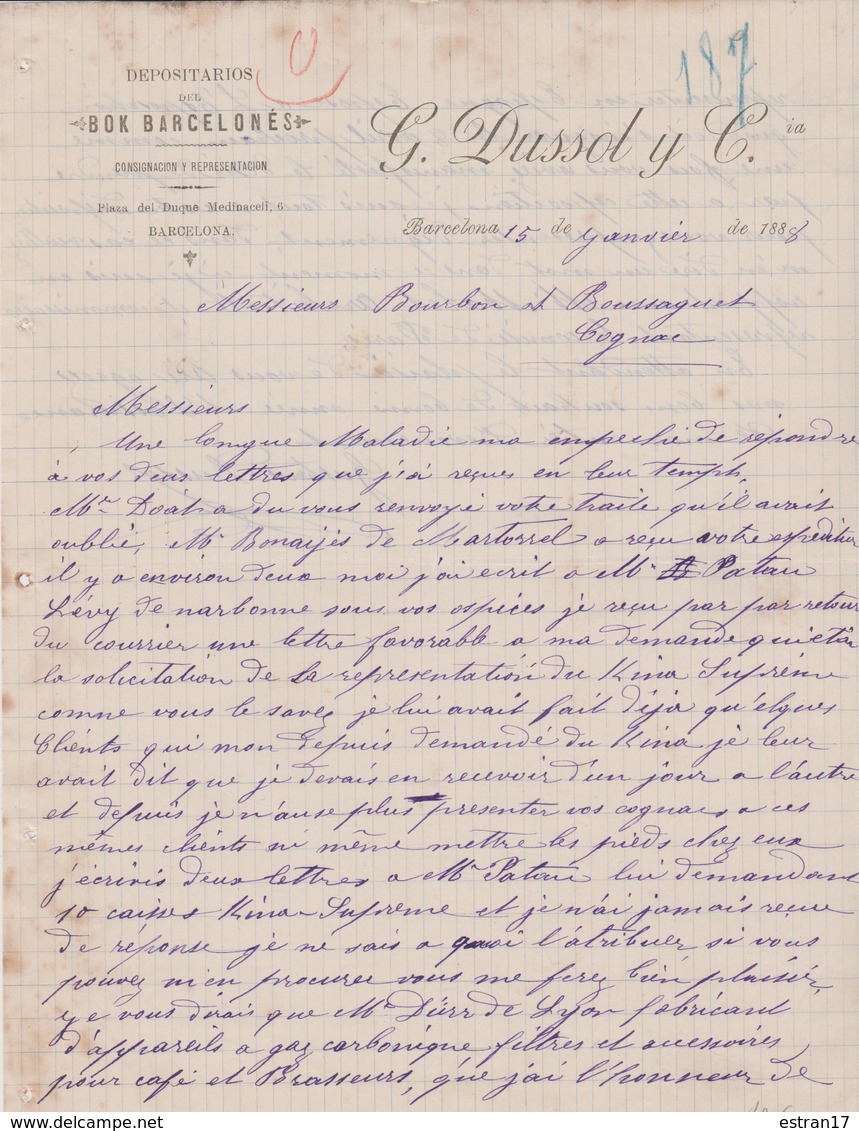 187
DEPOSITARIOS
DEL
BOK BARCELONÉS
CONSIGNACION Y REPRESENTACION
Plaza del Duque Medinaceli, 6
BARCELONA.
G. Dussol y C.ia
Barcelona 15 de Janvier de 1888
Messieurs Bourbon et Boussaguet
Cognac
Messieurs
Une longue Maladie ma empeché de répondre
à vos deus lettres que j'ai reçues en leur temph,
Mr Doat a du vous renvoyé votre traite qu'il avait
oublié, Mr Bonaijés de Martorrel a reçu votre expédition
il y a environ deux moi j'ai ecrit a Mr Patau
Lévy de narbonne sous vos ospices je reçu par par retour
du courrier une lettre favorable a ma demande qui etai
la solicitation de la representation du Kina Suprème
comne vous le savez je lui avait fait déja qu'elques
Clients qui mon depuis demandé du Kina je leur
avait dit que je devais en recevoir d'un jour a l'autre
et depuis je n'ause plus presenter vos cognacs a ces
mêmes clients ni même mettre les pieds chez eux
j'écrivis deux lettres a Mr Patau lui demandant
10 caisses Kina-Suprème et je n'ai jamais reçue
de réponse je ne sais a quoi l'atribuer si vous
pouvez m'en procurer vous me ferez bien plaisir,
je vous dirais que Mr Dürr de Lyon fabricant
d'appareils a gaz carbonique filtres et accessoires
pour café et Brasseurs, que j'ai l'honneur de
estran17